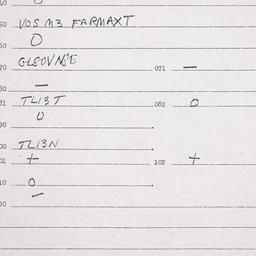 50 VOS M3 FARMAXT
50 O
GLSOVNCE
70 071 —
80 —
81 TL13T 082 O
O
90
00 TL13N
01 + 102 +
10 O
—
20